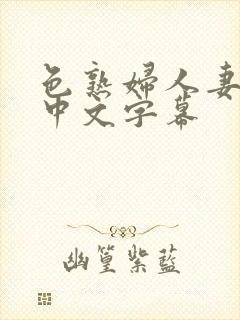 色熟婦人妻
中文字幕
幽篁紫藍